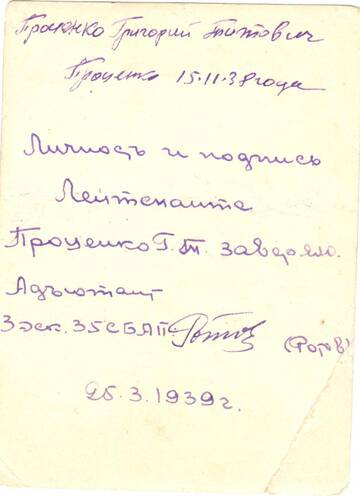 Проценко Григорий Титович
Проценко 15.11.38 года
Личность и подпись
Лейтенанта
Проценко Г.Т. заверяю.
Адъютант
3 эск. 35СБАП Фотов (Фотов)
25.3.1939г.